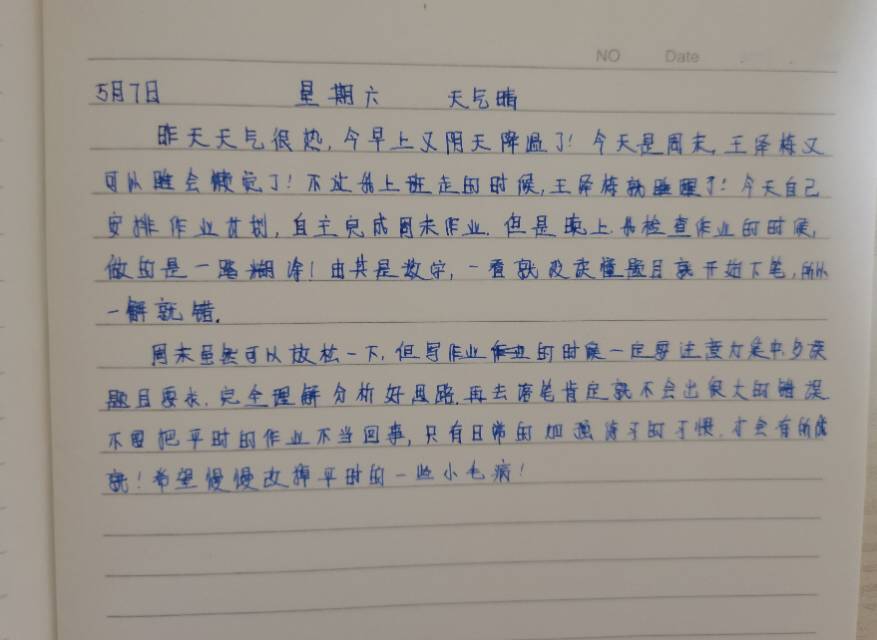 NO Date
5月7日 星期六 天气晴
昨天天气很热,今早上又阴天降温了!今天是周末,王泽栋又
可以睡会懒觉了!不过我上班走的时候,王泽栋就睡醒了!今天自己
安排作业计划,自主完成周末作业.但是晚上我检查作业的时候,
做的是一踏糊涂!由其是数学,一看就没读懂题目就开始下笔,所以
一解就错.
周末虽然可以放松一下,但写作业的时候一定要注意力集中.多读
题目要求.完全理解分析好思路.再去落笔肯定就不会出很大的错误
不要把平时的作业不当回事,只有日常的加强 才会有所
就!希望慢慢改掉平时的一些小毛病!